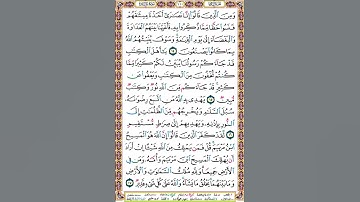 وَمِنَ ٱلَّذِينَ قَالُوٓا۟ إِنَّا نَصَٰرَىٰٓ أَخَذْنَا مِيثَٰقَهُمْ
فَنَسُوا۟ حَظًّا مِّمَّا ذُكِّرُوا۟ بِهِۦ فَأَغْرَيْنَا بَيْنَهُمُ ٱلْعَدَاوَةَ
وَٱلْبَغْضَآءَ إِلَىٰ يَوْمِ ٱلْقِيَٰمَةِ وَسَوْفَ يُنَبِّئُهُمُ ٱللَّهُ
بِمَا كَانُوا۟ يَصْنَعُونَ ١٤ يَٰٓأَهْلَ ٱلْكِتَٰبِ
قَدْ جَآءَكُمْ رَسُولُنَا يُبَيِّنُ لَكُمْ كَثِيرًا مِّمَّا
كُنتُمْ تُخْفُونَ مِنَ ٱلْكِتَٰبِ وَيَعْفُوا۟ عَن كَثِيرٍ
قَدْ جَآءَكُم مِّنَ ٱللَّهِ نُورٌ وَكِتَٰبٌ
مُّبِينٌ ١٥ يَهْدِى بِهِ ٱللَّهُ مَنِ ٱتَّبَعَ رِضْوَٰنَهُۥ
سُبُلَ ٱلسَّلَٰمِ وَيُخْرِجُهُم مِّنَ ٱلظُّلُمَٰتِ إِلَى
ٱلنُّورِ بِإِذْنِهِۦ وَيَهْدِيهِمْ إِلَىٰ صِرَٰطٍ مُّسْتَقِيمٍ
١٦ لَّقَدْ كَفَرَ ٱلَّذِينَ قَالُوٓا۟ إِنَّ ٱللَّهَ هُوَ ٱلْمَسِيحُ
ٱبْنُ مَرْيَمَ قُلْ فَمَن يَمْلِكُ مِنَ ٱللَّهِ شَيْـًٔا إِنْ أَرَادَ
أَن يُهْلِكَ ٱلْمَسِيحَ ٱبْنَ مَرْيَمَ وَأُمَّهُۥ وَمَن فِى
ٱلْأَرْضِ جَمِيعًا وَلِلَّهِ مُلْكُ ٱلسَّمَٰوَٰتِ وَٱلْأَرْضِ
وَمَا بَيْنَهُمَا يَخْلُقُ مَا يَشَآءُ وَٱللَّهُ عَلَىٰ كُلِّ شَىْءٍ قَدِيرٌ ١٧